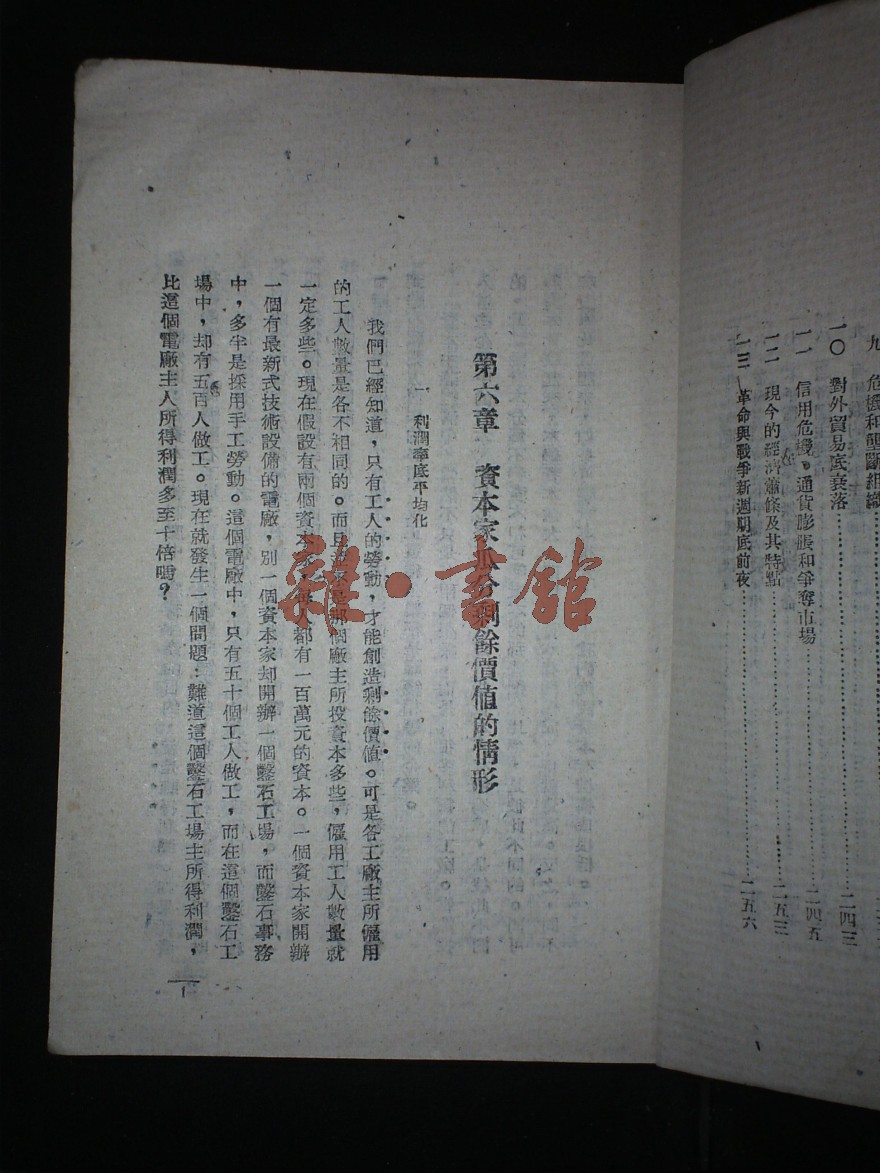 九 危機和壟斷組織
一〇 對外貿易底衰落……二四三
一一 信用危機。通貨膨脹和爭奪市場……二四五
一二 現今的經濟蕭條及其特點……二五三
一三 革命與戰爭新週期底前夜……二五六
第六章 資本家瓜分剩餘價值的情形
一 利潤率底平均化
我們已經知道，只有工人的勞動，才能創造剩餘價值。可是各工廠主所僱用
的工人數量是各不相同的。而且並不是那個廠主所投資本多些，僱用工人數量就
一定多些。現在假設有兩個資本家，每人都有一百萬元的資本。一個資本家開辦
一個有最新式技術設備的電廠，別一個資本家却開辦一個鑿石工場，而鑿石事務
中，多半是採用手工勞動。這個電廠中，只有五十個工人做工，而在這個鑿石工
場中，却有五百人做工。現在就發生一個問題：難道這個鑿石工場主所得利潤，
比這個電廠主人所得利潤多至十倍嗎？
1
雜·書館